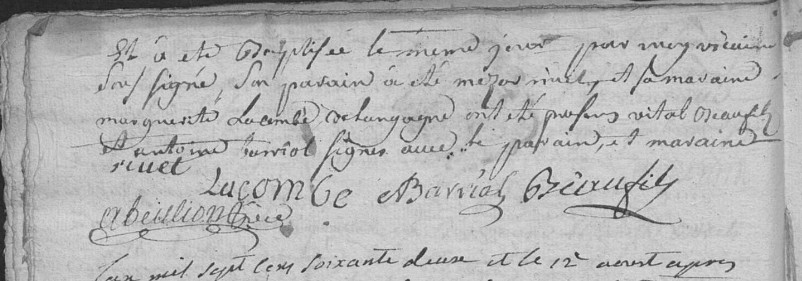 et à été Baptisée le meme jour par moy vicaire
sous signé, son parain à été rivet, et sa maraine
marguerite Lacombe de langogne ont été presens vital Beaufils
et antoine Barriol signes avec le parain, et maraine
rivet
Lacombe Barrial Beaufils
abeillion
l'an mil sept cens soixante deux et le 12e aoust apres